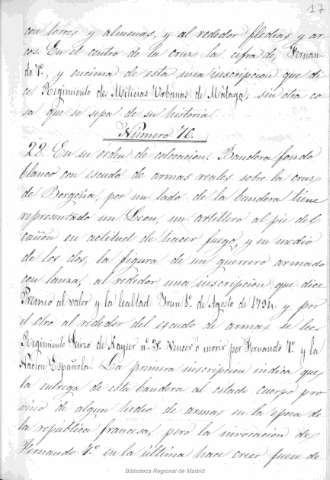 17
con torres y almenas, y al rededor flechas y ar
cos. En el centro de la cruz la cifra de, Fernan-
do 7º, y encima de esta una inscripcion que di
ce Regimiento de Milicias Urbanas de Malaga, sin otra co
sa que se sepa de su historia.
Numero 76.
22. En su orden de colocacion. Bandera fondo
blanco con escudo de armas reales sobre la cruz
de Borgoña, por un lado de la bandera tiene
representado un Leon, un artillero al pie del
cañon en actitud de hacer fuego, y en medio
de los dos, la figura de un guerrero armado
con lanza, al rededor una inscripcion que dice
Premio al valor y la lealtad. Irun 5º de Agosto de 1794. y por
el otro al rededor del escudo de armas se lee
Regimiento Suizo de Kayser nº 3º. Vencer ó morir por Fernando 7º y la
Nacion Española. La primera inscripcion indica que
la entrega de esta bandera al citado cuerpo pro
vino de algun hecho de armas en la epoca de
la republica francesa, pero la invocacion de
Fernando 7º en la última hace creer fuese de
Biblioteca Regional de Madrid